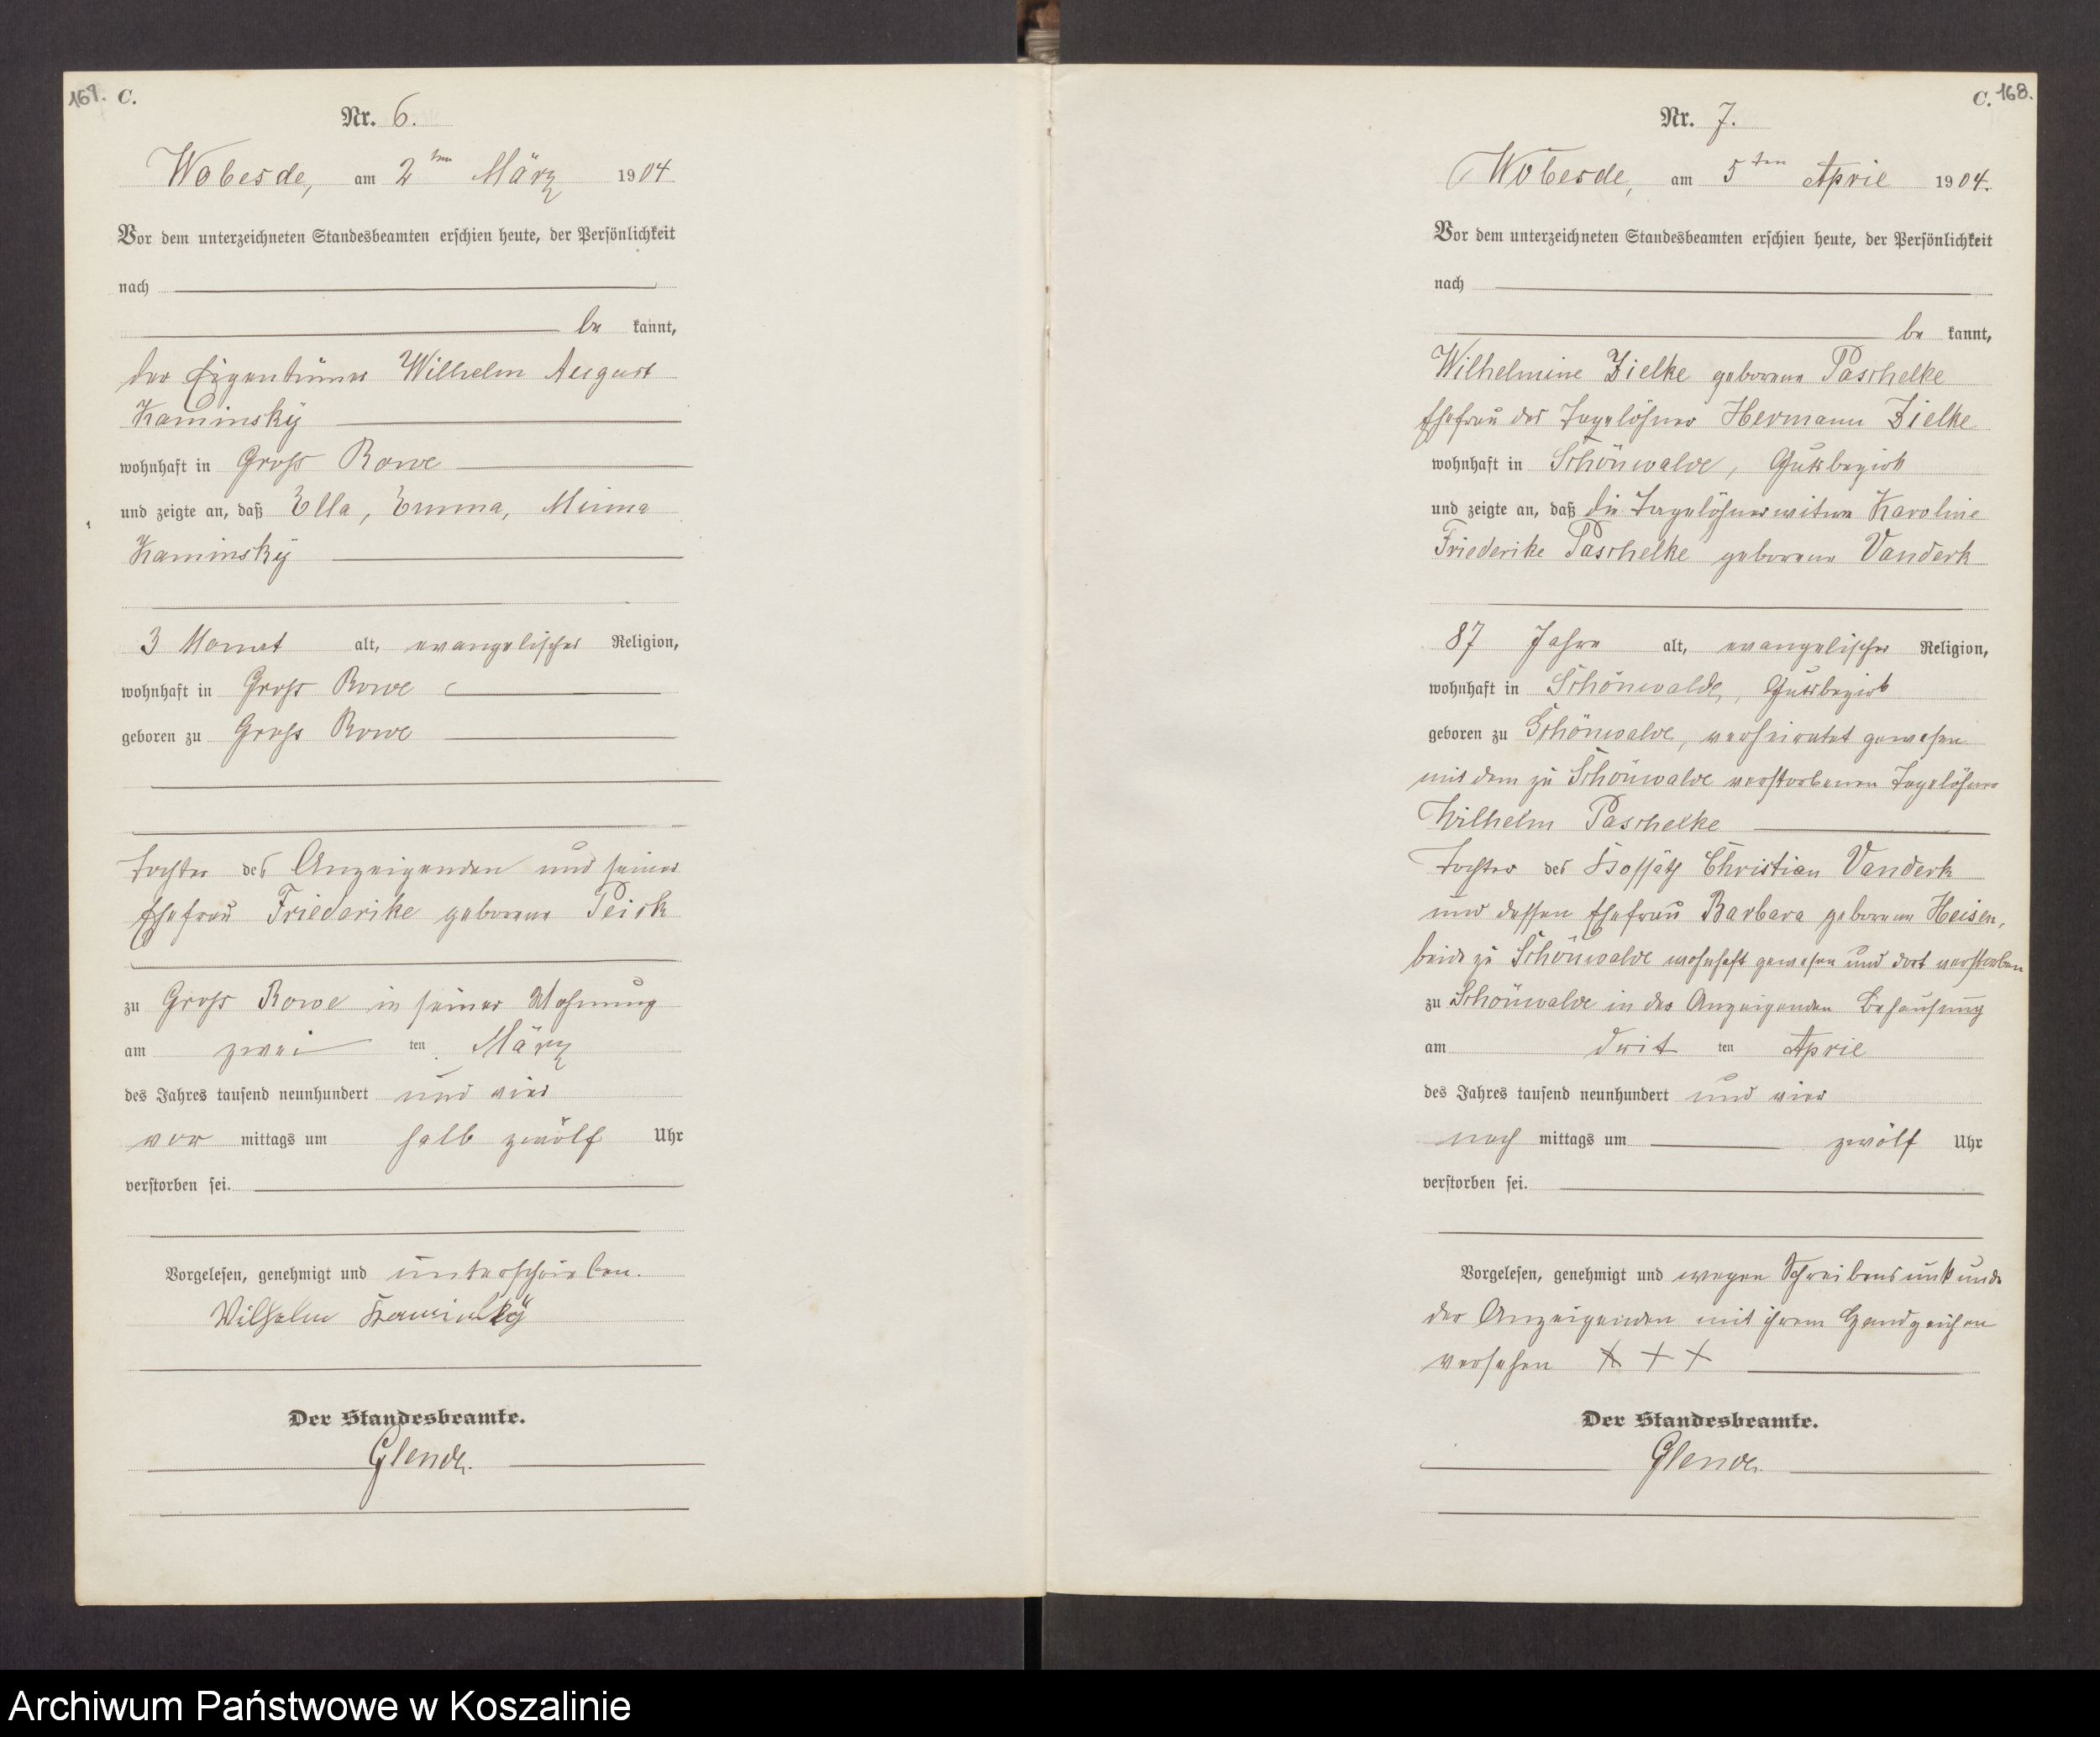 C.
Nr. 6.
Wobesde, am 2ten März 1904
Vor dem unterzeichneten Standesbeamten erschien heute, der Persönlichkeit
nach
be kannt,
der Eigentümer Wilhelm August
Kaminsky
wohnhaft in Groß Rowe
und zeigte an, daß Ella, Emma, Minna
Kaminsky
3 Monat alt, evangelischer Religion,
wohnhaft in Groß Rowe
geboren zu Groß Rowe
Tochter des Anzeigenden und seiner
Ehefrau Friederike geborene
zu Groß Rowe in seiner Wohnung
am zwei ten März
des Jahres tausend neunhundert und vier
vor mittags um halb zwölf Uhr
verstorben sei.
Vorgelesen, genehmigt und unterschrieben.
Wilhelm Kaminsky
Der Standesbeamte.
Glende.
C. 168.
Nr. 7.
Wobesde, am 5ten April 1904.
Vor dem unterzeichneten Standesbeamten erschien heute, der Persönlichkeit
nach
be kannt,
Wilhelmine Zielke geborene Paschelke
Ehefrau des Tagelöhner Hermann Zielke
wohnhaft in Schönwalde, Gutsbezirk
und zeigte an, daß die Tagelöhnerwitwe Karoline
Friederike Paschelke geborene Vanderk
87 Jahre alt, evangelischer Religion,
wohnhaft in Schönwalde, Gutsbezirk
geboren zu Schönwalde, verheiratet gewesen
mit dem zu Schönwalde verstorbenen Tagelöhner
Wilhelm Paschelke
Tochter des Kossäth Christian Vanderk
und dessen Ehefrau Barbara geborene Heisen,
beide zu Schönwalde wohnhaft gewesen und dort verstorben
zu Schönwalde in der Anzeigenden Behausung
am drit ten April
des Jahres tausend neunhundert und vier
nach mittags um zwölf Uhr
verstorben sei.
Vorgelesen, genehmigt und wegen Schreibensunkunde
der Anzeigenden mit ihrem Handzeichen
versehen + + +
Der Standesbeamte.
Glende.
Archiwum Państwowe w Koszalinie